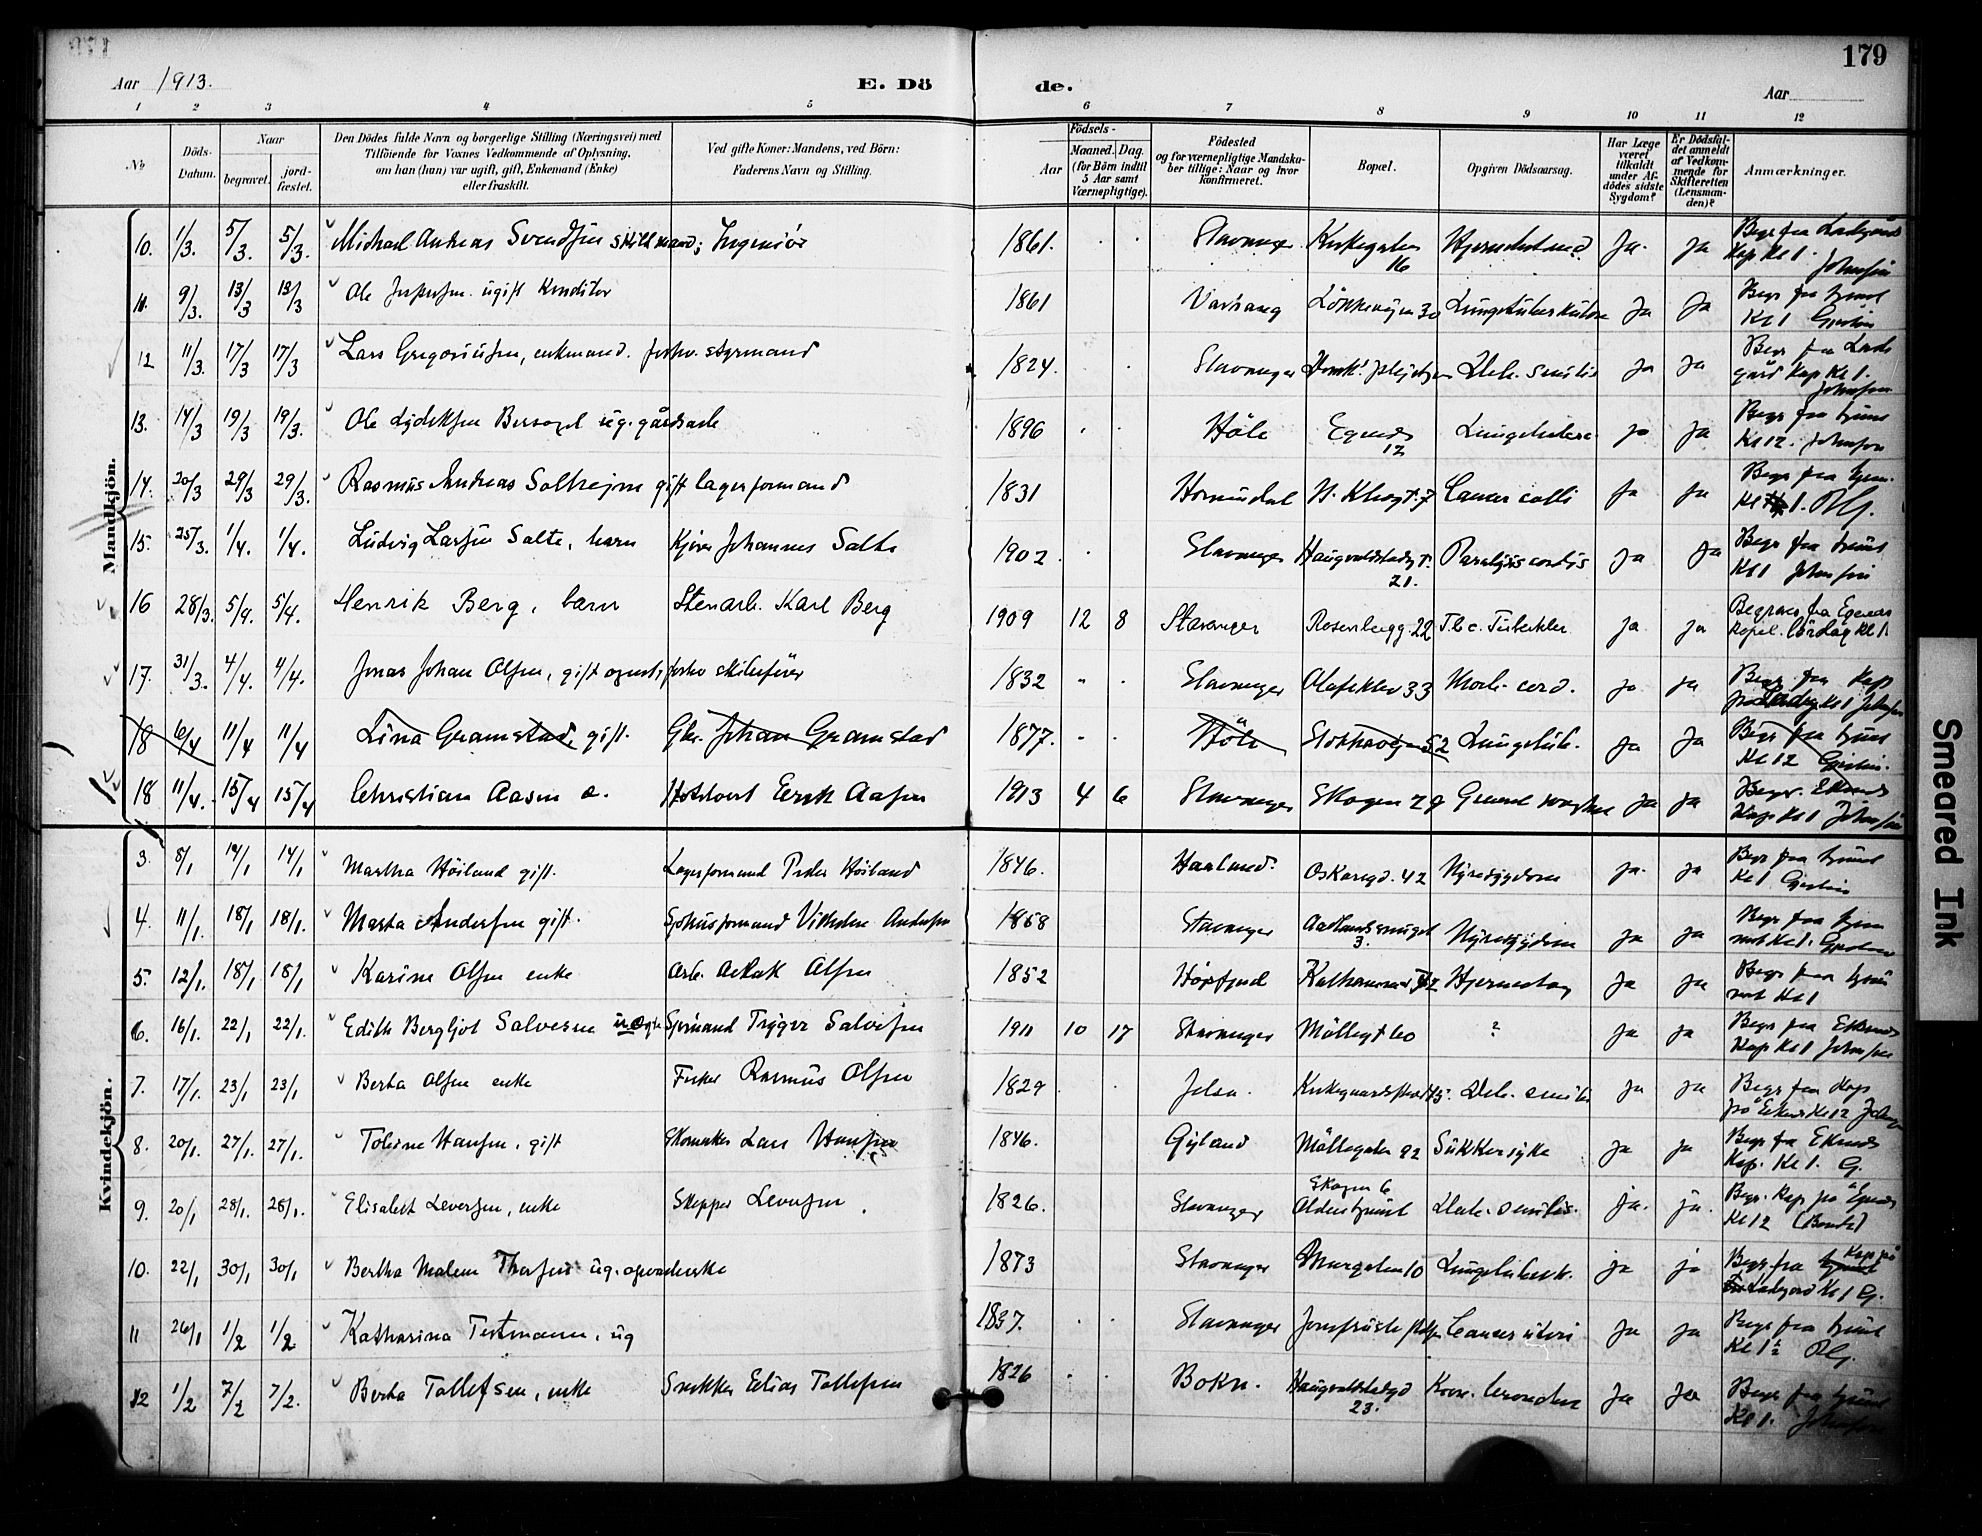 179
Aar 1913.
E. Dö
de.
Aar
1 2 3 4 5 6 7 8 9 10 11 12
No
Döds-Datum.
Naar
begravet.
jordfæstet.
Den Dödes fulde Navn og borgerlige Stilling (Næringsvei) med
Tilföiende for Voxnes Vedkommende af Oplysning.
om han (hun) var ugift, gift, Enkemand (Enke)
eller fraskilt.
Ved gifte Koner: Mandens, ved Börn:
Faderens Navn og Stilling.
Födsels-
Aar
Maaned. Dag.
(for Börn indtil
5 Aar samt
Værnepligtige).
Födested
og for værnepligtige Mandskaber tillige: Naar og hvor
konfirmeret.
Bopæl.
Opgiven Dödsaarsag.
Har Læge
været
tilkaldt
under Afdödes sidste
Sygdom?
Er Dödsfaldet anmeldt
af Vedkommende for
Skifteretten
(Lensmanden)?
Anmærkninger.
Mandkjön.
10. 1/3. 5/3. 5/3. Michael Andreas Svendsen skilt mand; Ingeniör 1861. Stavanger Kirkegaten 16 Ja. ja Begr fra Kap Kl 1. Johnsen
11. 9/3. 13/3 13/3 Ole Jespersen. ugift Konditor 1861 Varhaug Lökkevejen 30 Lungetuberkulose Ja Ja Begr fra hjemet Kl 1
12 11/3. 17/3 17/3 Lars Gregoriusen, enkmand. forhv. styrmand 1824. Stavanger Deb. senilis Ja Ja Begr fra Ladegård Kap Kl 1. Johnsen
13. 14/3 19/3 19/3. Ole ug. gårdsarb 1896 Höle Egenes 12 Lungetuberc. ja Ja Begr fra hjemet Kl 12. Johnsen
14. 20/3 29/3 29/3. Rasmus Andreas gift lagerformand 1831 Hornindal Cancer colli Ja Ja Begr fra hjem. Kl 1.
15. 25/3. 1/4. 1/4. Ludvig Larsen Salte, barn Johannes Salte 1902 Stavanger Haugvaldstadgt. 21. Paralysis cordis Ja Ja Begr fra hjemet Kl 1 Johnsen
16 28/3. 5/4. 5/4. Henrik Berg, barn Stenarb. Karl Berg 1909 12 8 Stavanger Rosenbergg. 22 Tbc. Tuberkler ja ja Begraves fra Egenes kapel. lördag Kl 1.
17. 31/3. 4/4. 4/4. Jonas Johan Olsen, gift agent, forhv skibsförer 1832 Stavanger Olafsklev 33 Morb. cord. ja ja Begr fra Kap på Kl 1 Johnsen
18 6/4 11/4 11/4 Lina Gramstad, gift. Johan Gramstad 1877. Höle 52 Lungetub. ja Ja Begr fra hjemet Kl 12
18 11/4. 15/4 15/4 Christian Aasen Erik Aasen 1913 4 6 Stavanger Skagen Ja Ja Begr. Ekenes Kap Kl 1 Johnsen
Kvindekjön.
3. 8/1 14/1 14/1 Martha Höiland gift. Lagerformand Peder Höiland 1846. Haaland. Oskarsgd. 42 Nyresygdom ja. ja Begr fra hjemet Kl 1
4. 11/1. 18/1 18/1. Marta Andersen gift. Sjöhusformand Vilhelm Andersen 1858 Stavanger 3. Nyresygdom ja ja Begr fra hjem met Kl 1.
5. 12/1. 18/1 18/1 Karine Olsen enke Arb. Olsen 1852 Ja ja Begr fra hjem met Kl 1
6. 16/1. 22/1 22/1. Edith Bergljot Salvesen uægte Sjömand Trygve Salvesen 1911 10 17 Stavanger Möllegt 60 ? ja ja Begr fra Ekenes Kap Kl 1 Johnsen
7. 17/1. 23/1 23/1 Berta Olsen enke Fisker Rasmus Olsen 1829 Jelsa. Deb. senilis ja ja Begr fra Kap på Kl 12
8. 20/1. 27/1. 27/1. Toline Hansen, gift Skomaker Lars Hansen 1846. Gyland Möllegaten 92 Sukkersyke ja ja Begr fra Ekenes Kap. Kl 1. G.
9. 20/1 28/1. 28/1. Elisabet Leversen, enke Skipper Leversen 1826. Stavanger Skagen 6 Aldershjemmet Deb. senilis. ja. ja. Begr. Kap på Egenes Kl 12
10. 22/1 30/1 30/1 Bertha Malene ug. 1873 Stavanger 10 Lungetuberk. ja ja Begr. fra Kap på Ladegård Kl 1 G.
11 26/1 1/2 1/2 Katharina Testmann, ug 1837. Stavanger Cancer uteri Ja Ja Begr fra hjemet Kl 1½
12 1/2 7/2 7/2. Berta Tollefsen, enke Snekker Elias Tollefsen 1826 Bokn. Haugvaldstadgd 23. Ja Ja Begr fra hjemet Kl 1. Johnsen
Smeared Ink